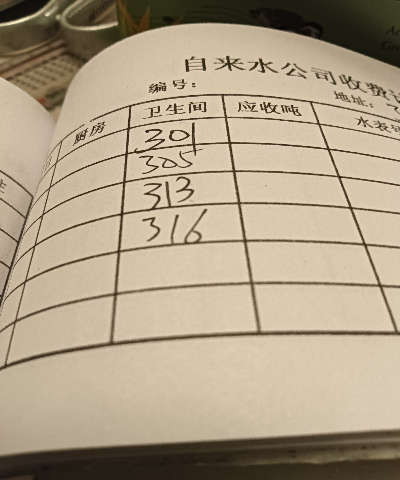 自来水公司收费
编号：
地址：
厨房 卫生间 应收吨 水表
301
305
313
316